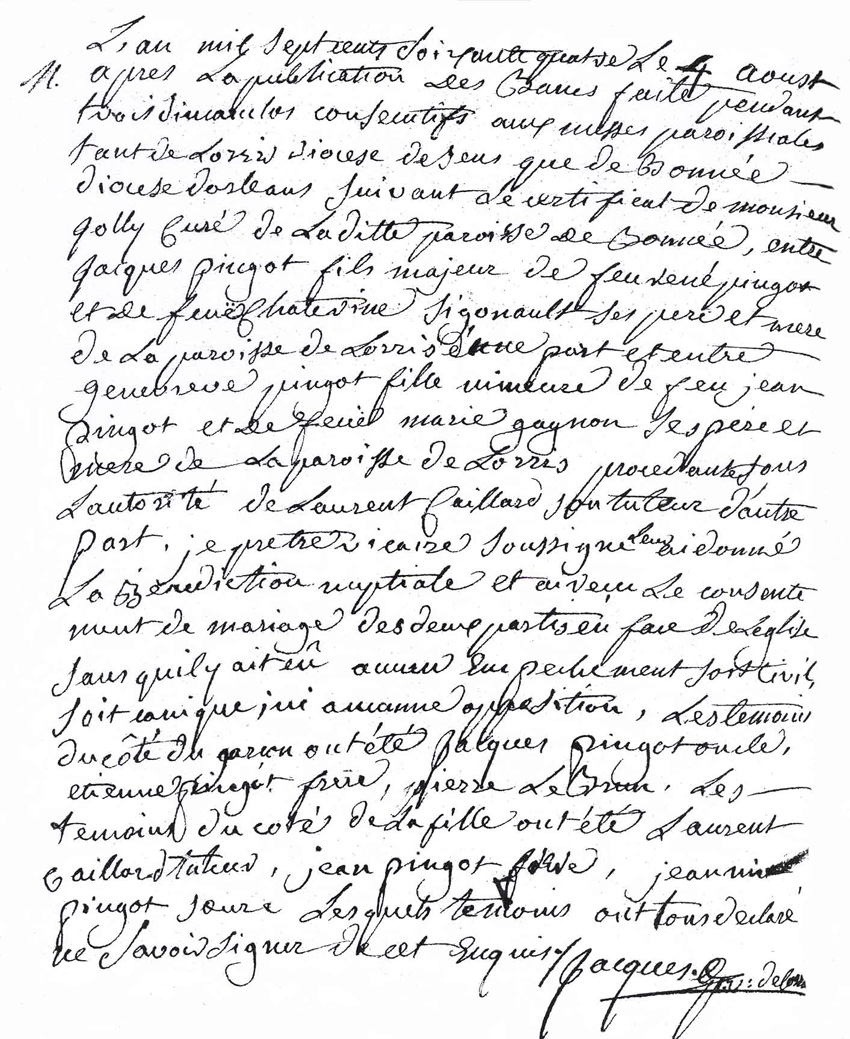 L'an mil Sept cents Soixante quatre Le 4 aoust
M. apres La publication des Bancs faite pendant
trois dimanches consecutifs aux messes paroissiales
tant de Lorris diocese de Sens que de Bonnée
diocese dorleans suivant le certificat de monsieur
golly Curé de Laditte paroisse de Bonnée, entre
Jacques pingot fils majeur de feu rené pingot
et de feuë Chaterine Sigonault Ses pere et mere
de La paroisse de Lorris d'une part et entre
genevieve pingot fille mineure de feu jean
pingot et de feuë marie gagnon Ses pere et
mere de La paroisse de Lorris procedante sous
L'autorité de Laurent Caillard son tuteur d'autre
part, je pretre vicaire soussigne leur ai donné
La Bénediction nuptiale et ai veceu Le consente
ment de mariage des deux parties en face de Leglise
sans quil y ait eû aucun Empechement soit Civil,
soit canique, ni aucunne opposition, Les temoins
du côté du garcon ont été Jacques pingot oncle,
etienne pingot frere, pierre Le Brun. Les
temoins du coté de la fille ont été Laurent
Caillard tuteur, jean pingot frere, jeanne
pingot soeure Lesquels temoins ont tous declaré
ne Savoir Signer de cet Enquis / Jacques